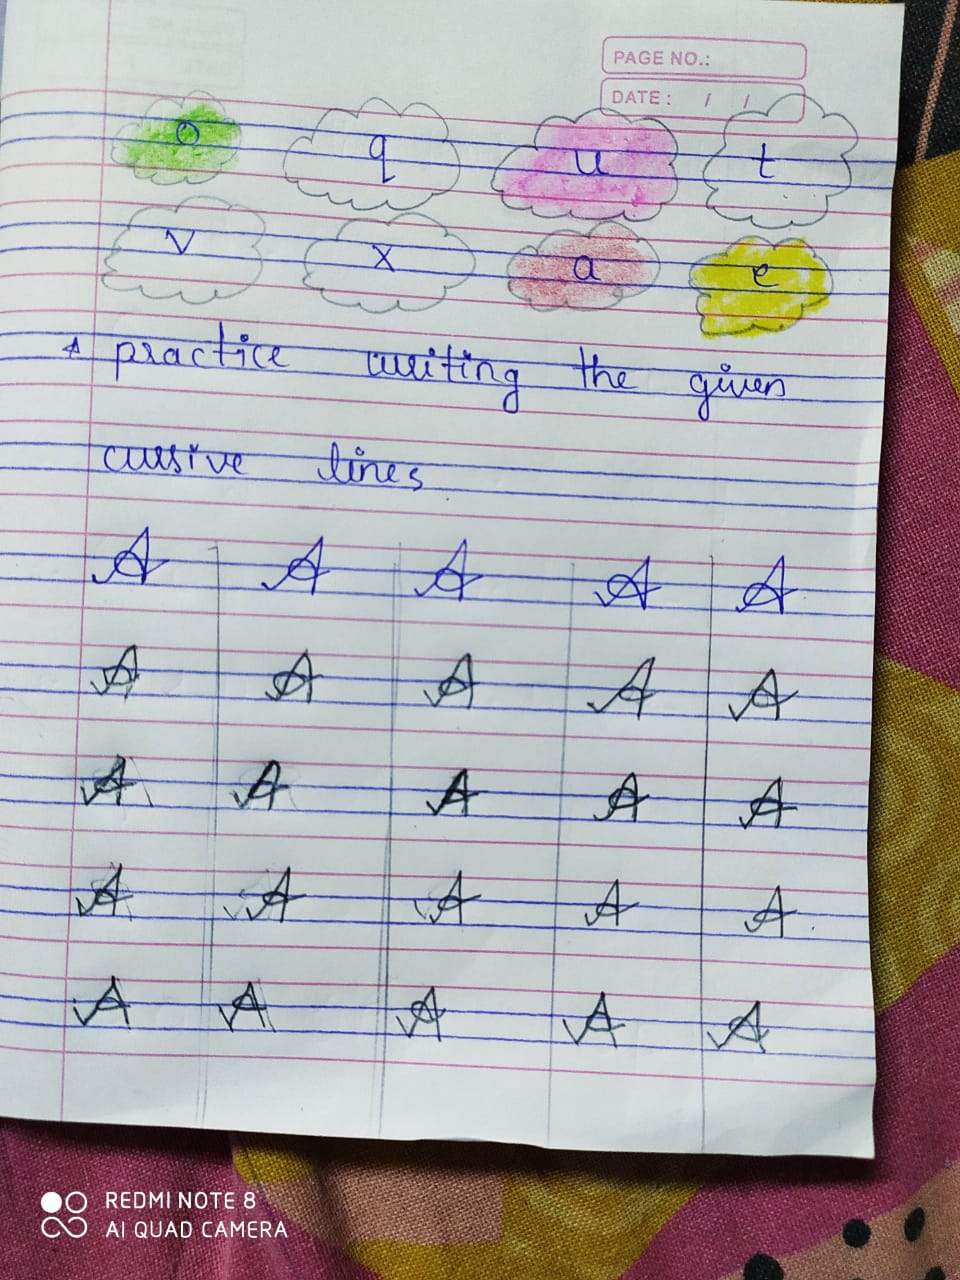 PAGE NO.:
DATE : / /
o q u t
v x a e
practice writing the given
cursive lines
A A A A A
A A A A A
A A A A A
A A A A A
A A A A A
REDMI NOTE 8
AI QUAD CAMERA